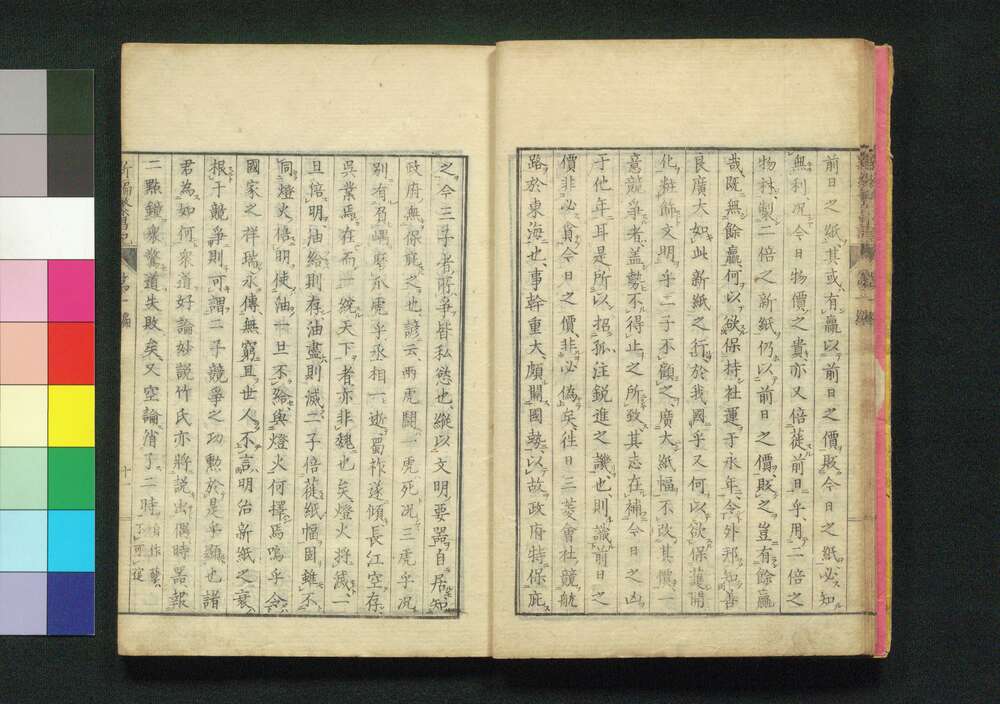 前日之紙其或有贏以前日之價販今日之紙必知
無利况今日物價之貴亦又倍蓰前日乎用二倍之
物料製二倍之新紙仍以前日之價販之豈有餘贏
哉既無餘贏何以欲保持社運于永年令外邦知善
良廣大如此新紙之行於我國乎又何以欲保護開
化粧飾文明乎二子不顧之廣大紙幅不改其價一
意競爭者蓋勢不得止之所致其志在補今日之凶
于他年耳是所以招孤注鋭進之譏也則識前日之
價非必貪今日之價非必偽矣往日三菱會社競航
路於東海也事幹重大頗關國勢以故政府特保庇
之今三子者所爭皆私慾也縱以文明要器自居知
政府無保庇之也諺云兩虎鬪一虎死况三虎乎况
別有負嵎磨爪虎乎丞相一逝蜀祚遂傾長江空存
吳業焉在而一統天下者亦非魏也矣燈火將滅一
旦倍明油給則存油盡則滅二子倍蓰紙幅固雖不
同燈火倍明使油一旦不給與燈火何擇焉嗚呼
國家之祥瑞永傳無窮且世人不言明治新紙之衰
根于競爭則可謂二子競爭之功勲於是乎顯也諸
君為如何衆道好論妙説竹氏亦將説出偶時器報
二點鐘衆驚道失敗矣又空論消了二時